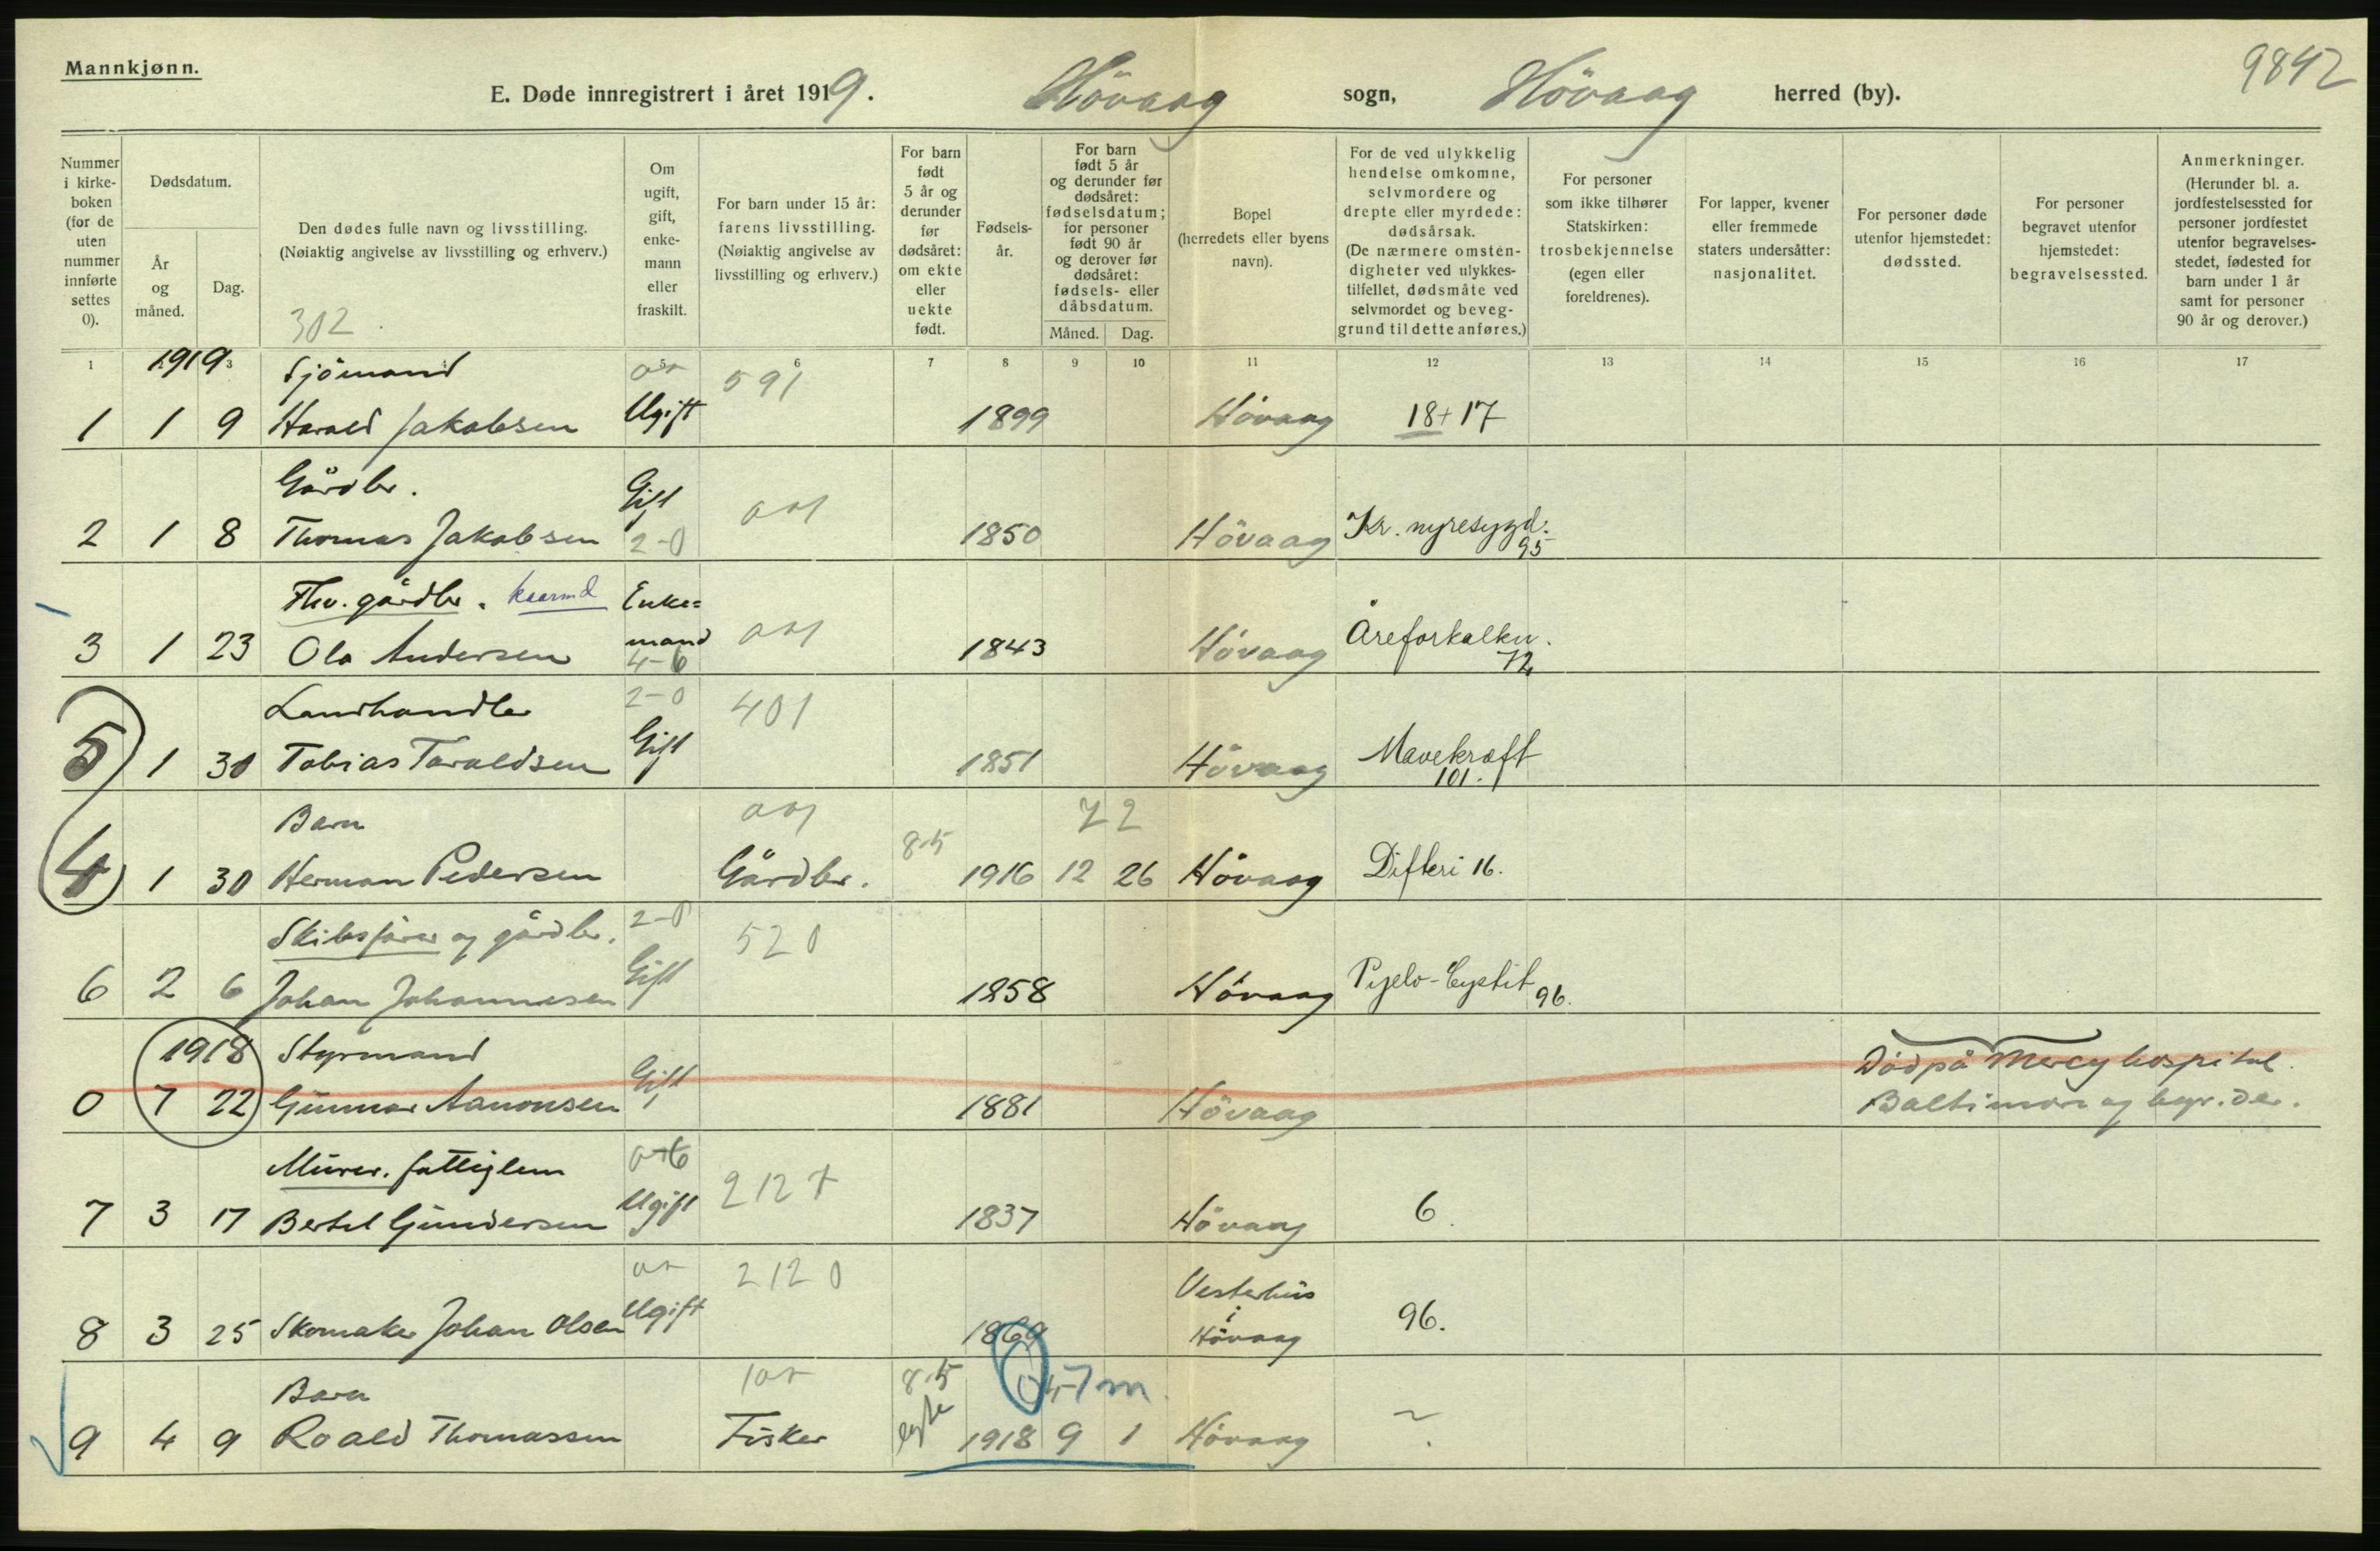 Mannkjønn.
9842
E. Døde innregistrert i året 1919. Hövaag sogn, Hövaag herred (by).
Nummer i kirkeboken (før de uten nummer innførte settes 0).
Dødsdatum.
År og måned.
Dag.
Den dødes fulle navn og livsstilling.
(Nøiaktig angivelse av livsstilling og erhverv.)
302.
Om ugift, gift, enkemann eller fraskilt.
For barn under 15 år: farens livsstilling. (Nøiaktig angivelse av livsstilling og erhverv.)
For barn født 5 år og derunder før dødsåret: om ekte eller uekte født.
Fødselsår.
For barn født 5 år og derunder før dødsåret: fødselsdatum; for personer født 90 år og derover før dødsåret: fødsels- eller dåbsdatum.
Måned. Dag.
Bopel (herredets eller byens navn).
For de ved ulykkelig hendelse omkomne, selvmordere og drepte eller myrdede: dødsårsak. (De nærmere omstendigheter ved ulykkestilfellet, dødsmåte ved selvmordet og beveggrund til dette anføres.)
For personer som ikke tilhører Statskirken: trosbekjennelse (egen eller foreldrenes).
For lapper, kvener eller fremmede staters undersåtter: nasjonalitet.
For personer døde utenfor hjemstedet: dødssted.
For personer begravet utenfor hjemstedet: begravelsessted.
Anmerkninger. (Herunder bl. a. jordfestelsessted for personer jordfestet utenfor begravelsesstedet, fødested for barn under 1 år samt for personer 90 år og derover.)
1 3 5 6 7 8 9 10 11 12 13 14 15 16 17
1919 Sjömand 591
1 1 9 Harald Jakobsen Ugift 1899 Hövaag 18+17
Gårdbr. Gift
2 1 8 Thomas Jakobsen 2-0 1850 Hövaag Kr. nyresygd. 95
Fhv. gårdbr. kaarmd Enke=
3 1 23 Ola Andersen mand 4-6 1843 Hövaag Åreforkalkn. 72
Landhandler 2-0 401
5 1 30 Tobias Taraldsen Gift 1851 Hövaag Mavekræft 101.
Barn 72
4 1 30 Herman Pedersen Gårdbr. 8.5 1916 12 26 Hövaag Difteri 16.
Skibsförer og gårdbr. 2-0 520
6 2 6 Johan Johannesen Gift 1858 Hövaag Pyelo-Cystit 96.
1918 Styrmand Död på Mercy hospital.
0 7 22 Gunnar Aanonsen Gift 1881 Hövaag Baltimore og begr. der.
Murer. fattiglem 212+
7 3 17 Bertel Gundersen Ugift 1837 Hövaag 6.
2120 Vesterhus
8 3 25 Skomaker Johan Olsen Ugift 1869 i Hövaag 96.
Barn 8.5 7m.
9 4 9 Roald Thomassen Fisker 1918 9 1 Hövaag